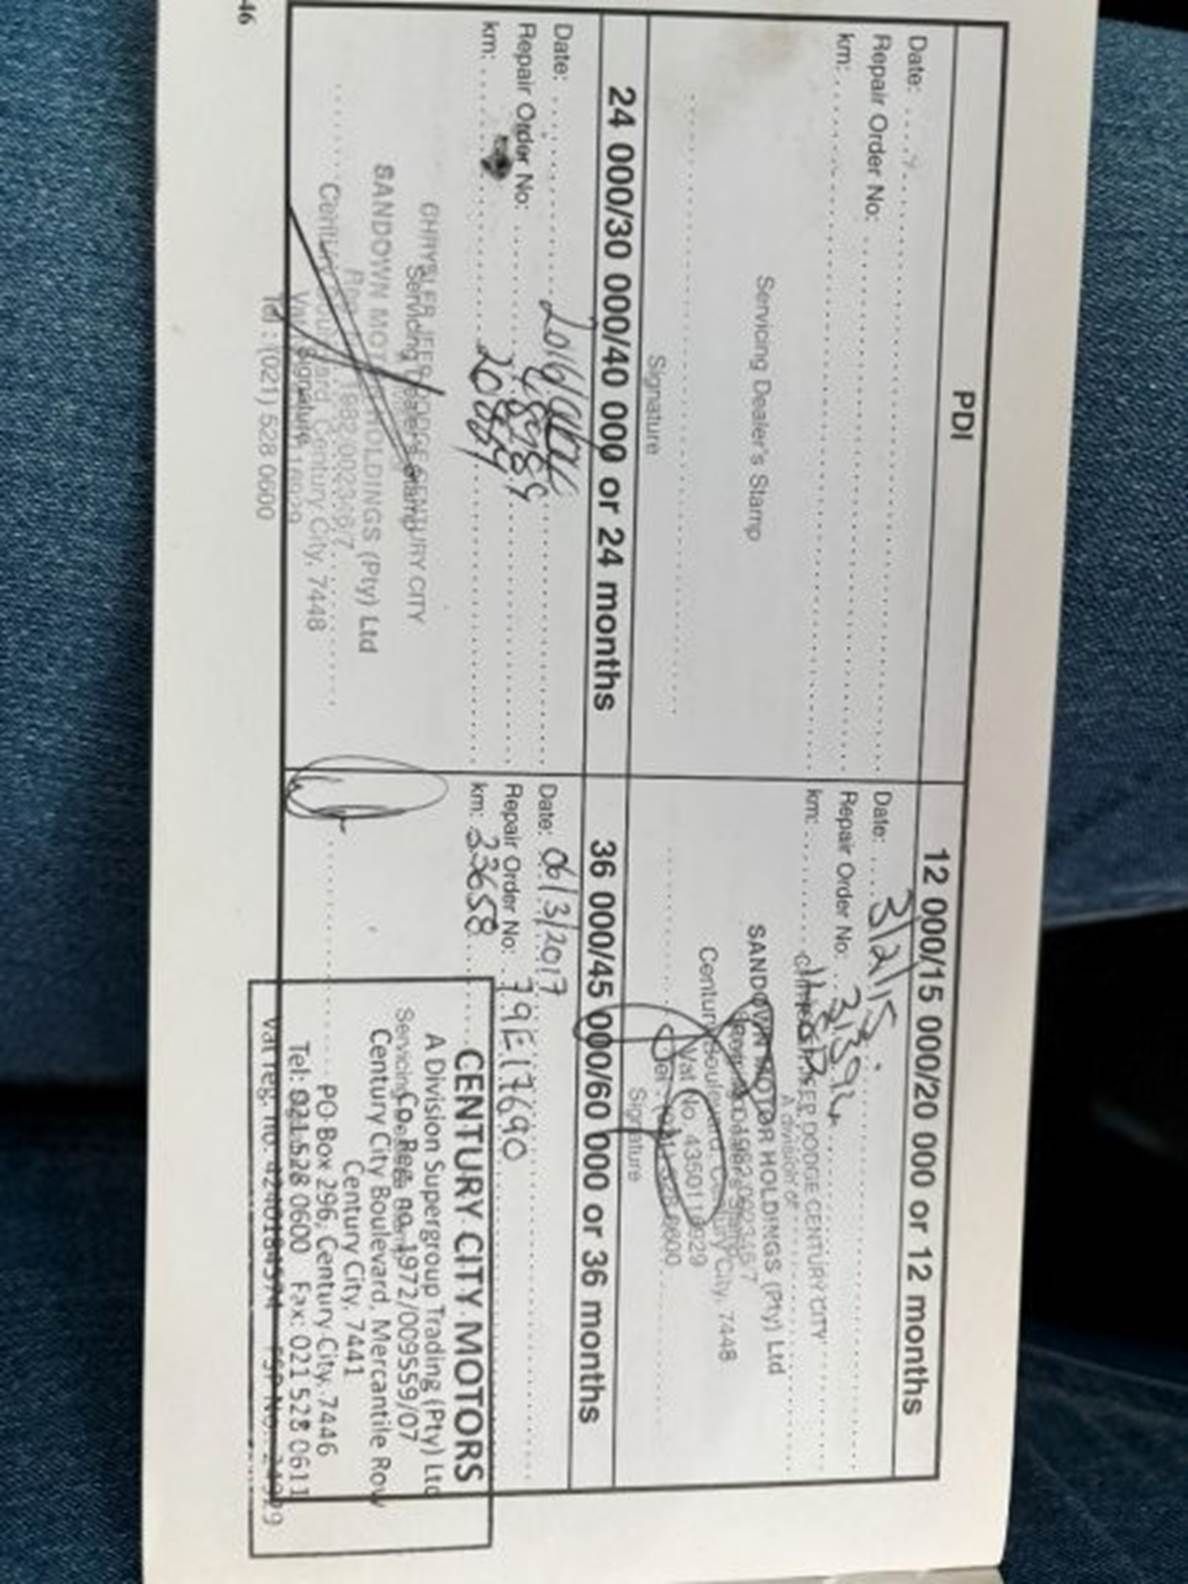 PDI
Date:
Repair Order No:
km:
Servicing Dealer's Stamp
Signature
12 000/15 000/20 000 or 12 months
Date: 3/2/15
Repair Order No:
km:
DODGE CENTURY CITY
A division of
SANDOWN MOTOR HOLDINGS (Pty) Ltd
Century Boulevard, Century City, 7448
Vat No
Signature
24 000/30 000/40 000 or 24 months
Date:
Repair Order No:
km:
CHRYSLER JEEP DODGE CENTURY CITY
Servicing Dealer's Stamp
SANDOWN MOTOR HOLDINGS (Pty) Ltd
Century Boulevard, Century City, 7448
Signature
Tel : (021) 528 0600
36 000/45 000/60 000 or 36 months
Date: 06/3/2017
Repair Order No: 79E17690
km: 33658
CENTURY CITY MOTORS
A Division Supergroup Trading (Pty) Ltd
Co. Reg. no. 1972/009559/07
Century City Boulevard, Mercantile Row
Century City, 7441
PO Box 296, Century City, 7446
Tel: 021 528 0600 Fax: 021 528 0611
Vat reg. no.
46